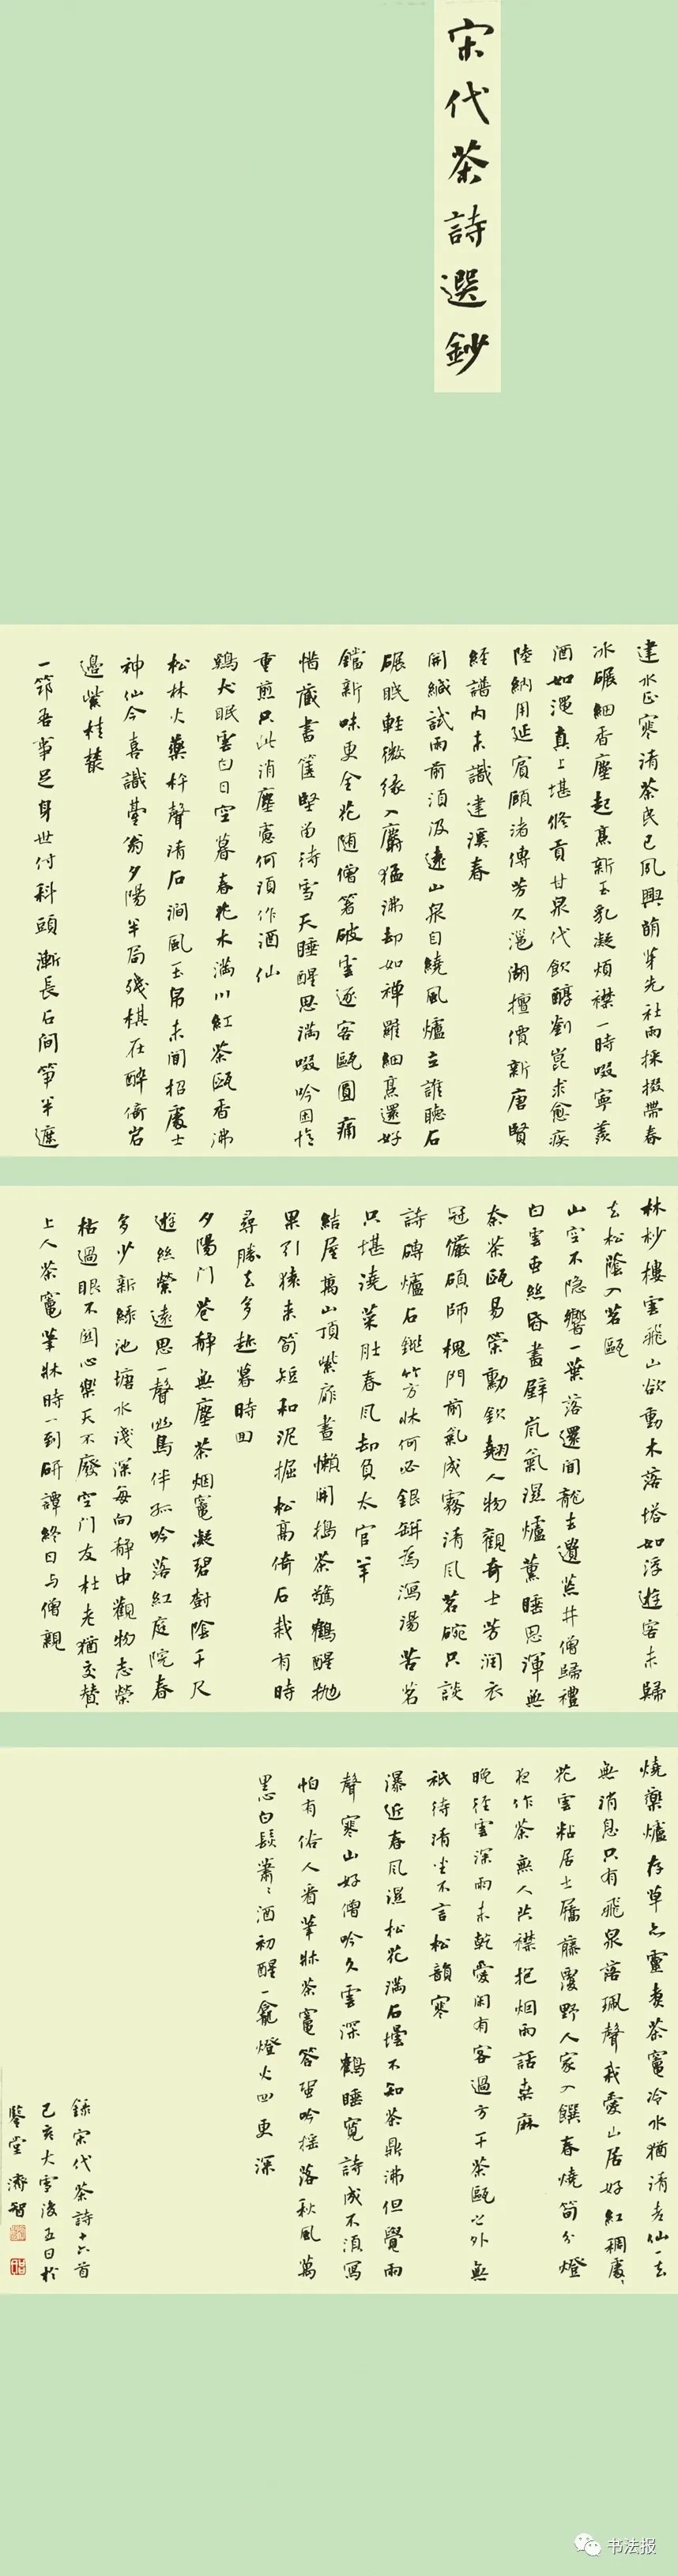 宋代茶詩選鈔
建水正寒清茶民已夙興萌芽先社雨採掇帶春
冰碾細香塵起烹新玉乳凝煩襟一時啜寧羨
酒如澠真上堪修貢甘泉代飲醇劉崑求愈疾
陸納用延賓顧渚傳芳久㴩湖擅價新唐賢
經譜内未識建溪春
開緘試雨前須汲遠山泉自繞風爐立誰聽石
碾眠輕微緣入麝猛沸却如禪羅細烹還好
鐺新味更全花随僧箸破雲逐客甌圓痛
惜藏書篋堅留待雪天睡醒思滿啜吟困憶
重煎只此消塵慮何須作酒仙
鷄犬眠雲白日空暮春花木滿川紅茶甌香沸
松林火藥杵聲清石澗風玉帛未聞招處士
神仙今喜識臺翁夕陽半局殘棋在醉倚岩
邊紫桂叢
一筇吾事足身世付科頭漸長石間笋半遮
林杪樓雲飛山欲動木落塔如浮遊客未歸
去松陰入茗甌
山空不隐響一葉落還聞龍去遺荒井僧歸禮
白雲垂絲昏畫壁嵐氣濕爐薰睡思渾無
奈茶甌易策勳欽翹人物觀奇士芳润衣
冠儼碩師槐門前氣成霧清風茗碗只談
詩磚爐石銚竹方牀何必銀缾爲瀉湯苦茗
只堪澆菜肚春風却負太官羊
結屋萬山頂紫扉晝懶開搗茶驚鶴醒抛
果引猿来筍短和泥掘松高倚石栽有時
尋勝去多趂暮時回
夕陽门巷静無塵茶烟竈凝碧樹陰千尺
遊絲縈遠思一聲幽鳥伴孤吟落紅庭院春
多少新緑池塘水淺深每向静中觀物志榮
枯過眼不関心樂天不廢空门友杜老猶交賛
上人茶竈筆牀時一到研譚終日与僧親
燒藥爐存草亦靈煑茶竈冷水猶清老仙一去
無消息只有飛泉落珮聲我愛山居好紅稠處々
花雲粘居士屩藤覆野人家入饌春燒筍分燈
夜作茶無人共襟抱烟雨話桑麻
晚徑雲深雨未乾愛閑有客過方干茶甌之外無
衹待清坐不言松韻寒
瀑近春风濕松花滿石壇不知茶鼎沸但覺雨
聲寒山好僧吟久雲深鶴睡寬詩成不須寫
怕有俗人看筆牀茶竈答蛩吟摇落秋風萬
慮白鬚蕭々酒初醒一龕燈火四更深
錄宋代茶詩十六首
己亥大雪後五日於
鑒堂濤智
书法报